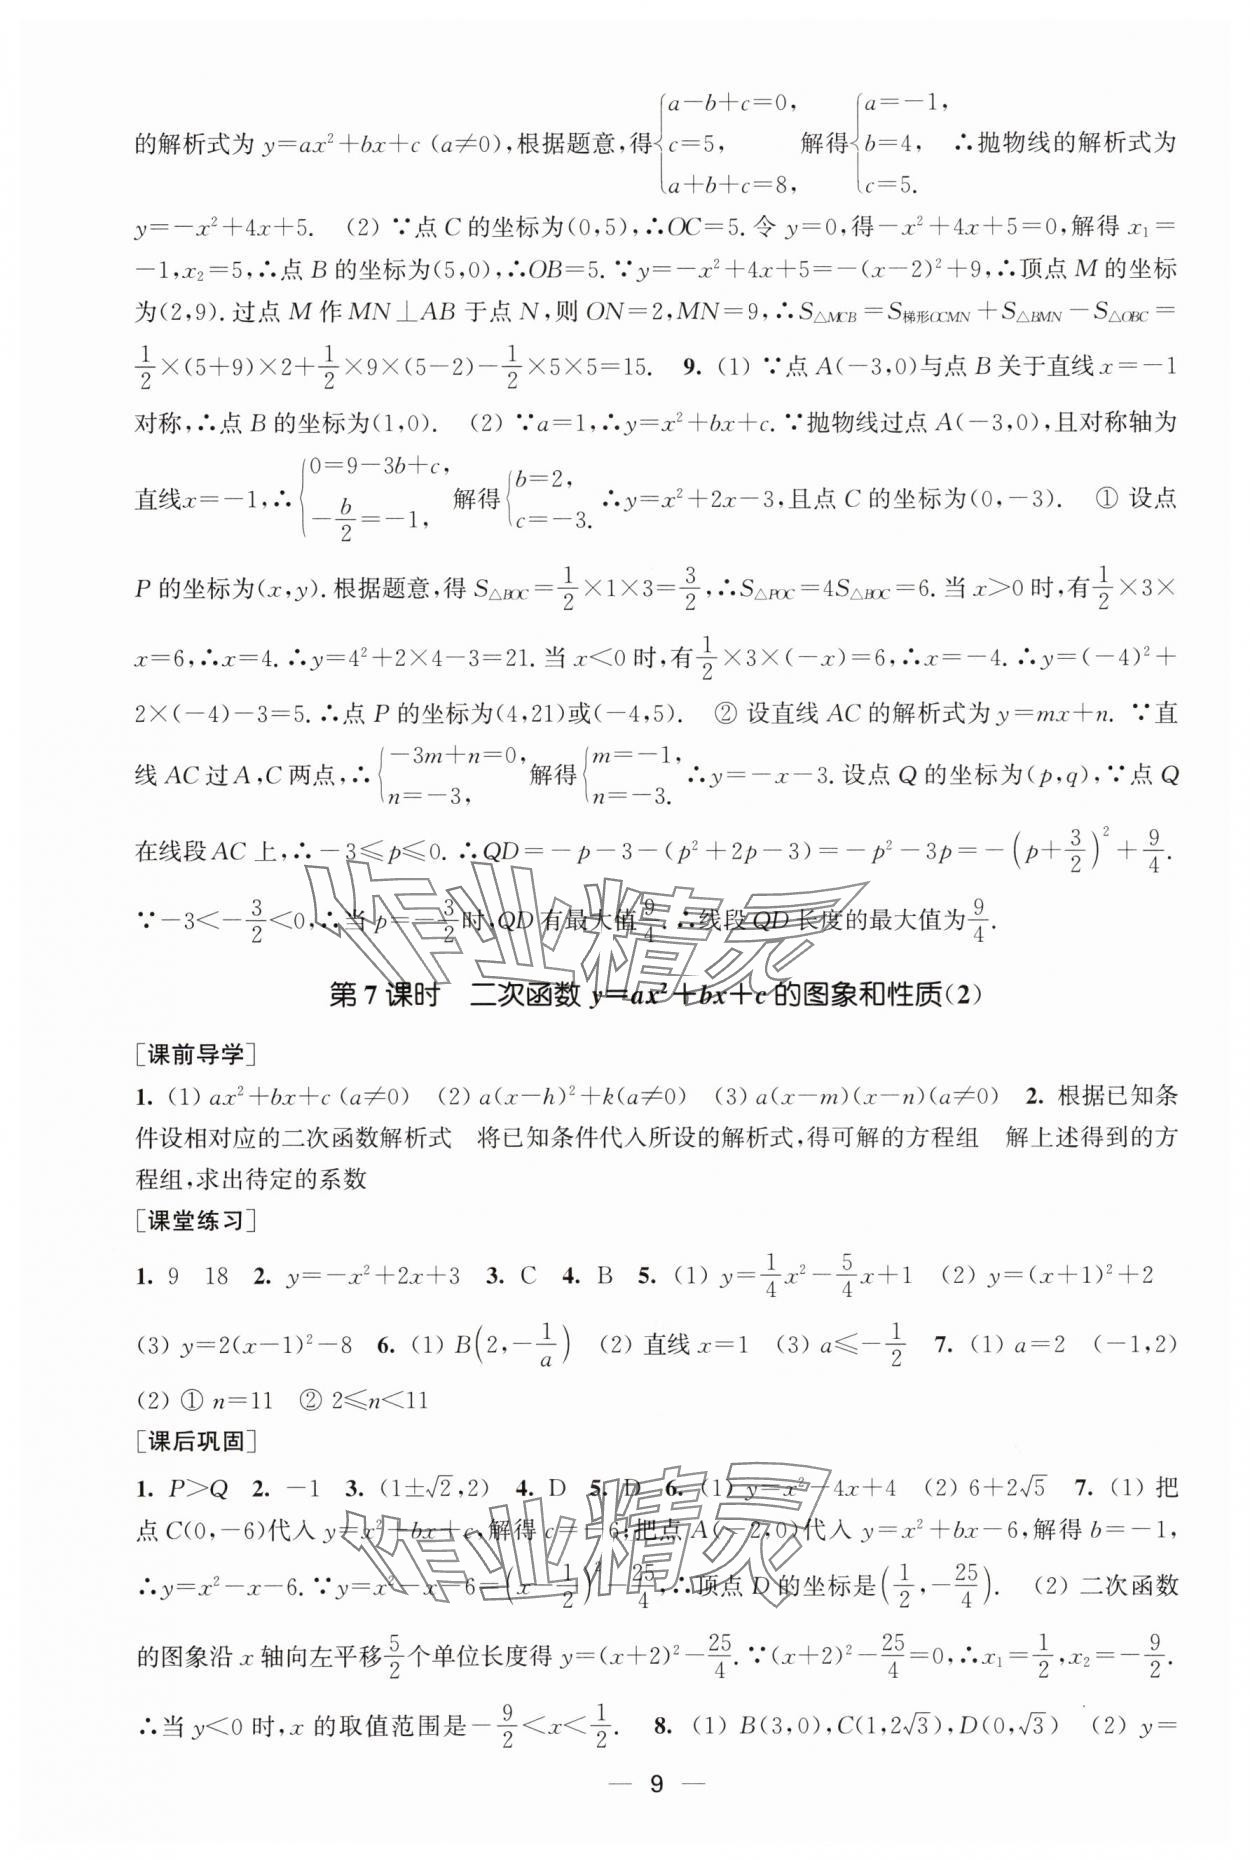 的解析式为 y=ax²+bx+c (a≠0),根据题意,得{a-b+c=0, c=5, a+b+c=8, 解得{a=-1, b=4, c=5. ∴抛物线的解析式为
y=-x²+4x+5. (2) ∵点 C 的坐标为(0,5),∴OC=5.令 y=0,得-x²+4x+5=0,解得 x₁=
-1,x₂=5,∴点 B 的坐标为(5,0),∴OB=5.∵y=-x²+4x+5=-(x-2)²+9,∴顶点 M 的坐标
为(2,9).过点 M 作 MN⊥AB 于点 N,则 ON=2,MN=9,∴S△MCB=S梯形OCMN+S△BMN-S△OBC=
1/2×(5+9)×2+1/2×9×(5-2)-1/2×5×5=15. 9. (1) ∵点 A(-3,0)与点 B 关于直线 x=-1
对称,∴点 B 的坐标为(1,0). (2) ∵a=1,∴y=x²+bx+c.∵抛物线过点 A(-3,0),且对称轴为
直线x=-1,∴{0=9-3b+c, -b/2=-1, 解得{b=2, c=-3. ∴y=x²+2x-3,且点 C 的坐标为(0,-3). ① 设点
P 的坐标为(x,y).根据题意,得 S△BOC=1/2×1×3=3/2,∴S△POC=4S△BOC=6.当 x>0 时,有1/2×3×
x=6,∴x=4.∴y=4²+2×4-3=21.当 x<0 时,有1/2×3×(-x)=6,∴x=-4.∴y=(-4)²+
2×(-4)-3=5.∴点 P 的坐标为(4,21)或(-4,5). ② 设直线 AC 的解析式为 y=mx+n. ∵直
线 AC 过 A,C 两点,∴{-3m+n=0, n=-3, 解得{m=-1, n=-3. ∴y=-x-3.设点 Q 的坐标为(p,q),∵点 Q
在线段 AC 上,∴-3≤p≤0.∴QD=-p-3-(p²+2p-3)=-p²-3p=-(p+3/2)²+9/4.
∵-3<-3/2<0,∴当 p=-3/2时,QD 有最大值9/4.∴线段 QD 长度的最大值为9/4.
第 7 课时 二次函数 y=ax²+bx+c 的图象和性质(2)
[课前导学]
1. (1) ax²+bx+c (a≠0) (2) a(x-h)²+k(a≠0) (3) a(x-m)(x-n)(a≠0) 2. 根据已知条
件设相对应的二次函数解析式 将已知条件代入所设的解析式,得可解的方程组 解上述得到的方
程组,求出待定的系数
[课堂练习]
1. 9 18 2. y=-x²+2x+3 3. C 4. B 5. (1) y=1/4x²-5/4x+1 (2) y=(x+1)²+2
(3) y=2(x-1)²-8 6. (1) B(2,-1/a) (2) 直线 x=1 (3) a≤-1/2 7. (1) a=2 (-1,2)
(2) ① n=11 ② 2≤n<11
[课后巩固]
1. P>Q 2. -1 3. (1±√2,2) 4. D 5. D 6. (1) y=x²-4x+4 (2) 6+2√5 7. (1) 把
点 C(0,-6)代入 y=x²+bx+c,解得 c=-6;把点 A(-2,0)代入 y=x²+bx-6,解得 b=-1,
∴y=x²-x-6.∵y=x²-x-6=(x-1/2)²-25/4,∴顶点 D 的坐标是(1/2,-25/4). (2) 二次函数
的图象沿 x 轴向左平移5/2个单位长度得 y=(x+2)²-25/4.∵(x+2)²-25/4=0,∴x₁=1/2,x₂=-9/2.
∴当 y<0 时,x 的取值范围是-9/2<x<1/2. 8. (1) B(3,0),C(1,2√3),D(0,√3) (2) y=
— 9 —
作业精灵
作业精灵